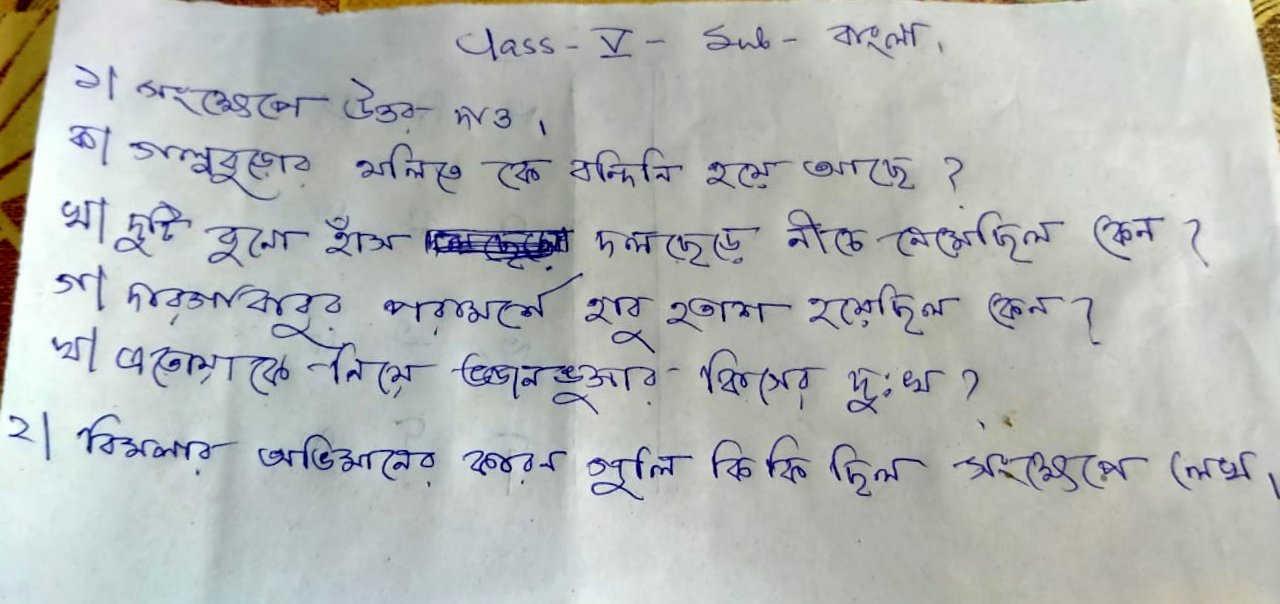 Class - V - Sub - বাংলা,
১| সংক্ষেপে উত্তর দাও,
ক| গল্পবুড়োর থলিতে কে বন্দিনি হয়ে আছে ?
খ| দুটি বুনো হাঁস দলছেড়ে নীচে নেমেছিল কেন ?
গ| দারগাবাবুর পরামর্শে হাবু হতাশ হয়েছিল কেন ?
ঘ| এতোয়াকে নিয়ে ভজনভুক্তার কিসের দুঃখ ?
২| বিমলার অভিমানের কারন গুলি কি কি ছিল সংক্ষেপে লেখ,